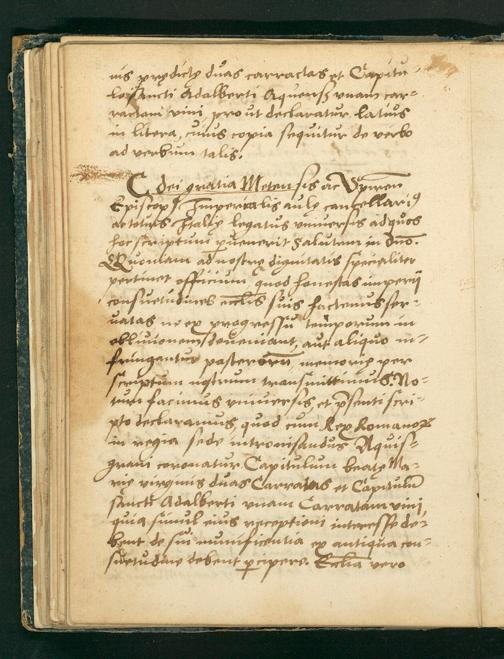 nis predicte duas carractas et Capitu
lo sancti Adalberti Aquensis vnam car-
ractam vini, prout declaratur latius
in litera, cuius copia sequitur de verbo
ad verbum talis.
C dei gratia Metensis ac Spiren
Episcopus Imperialis aule cancellarius
ac totius Italie legatus vniuersis ad quos
hoc scriptum peruenerit Salutem in dno.
Quoniam ad nostre dignitatis specialiter
pertinet officium quod honestas imperij
consuetudines ecclis suis hactenus ser-
uatas ne ex progressu temporum in
obliuionem deueniant, aut aliquo in-
fringantur posterorum memorie per
scriptum nostrum transmittimus. No-
tum facimus vniuersis, et presenti scri-
pto declaramus, quod cum Rex Romanorum
in regia sede intronisandus Aquis-
grani coronatur Capitulum beate Ma-
rie virginis duas Carratas et Capitulum
sancti Adalberti vnam Carratam vini,
quia simul eius receptioni interesse de-
bent de sui munificentia ex antiqua con-
suetudine debent percipere. Ecclia vero